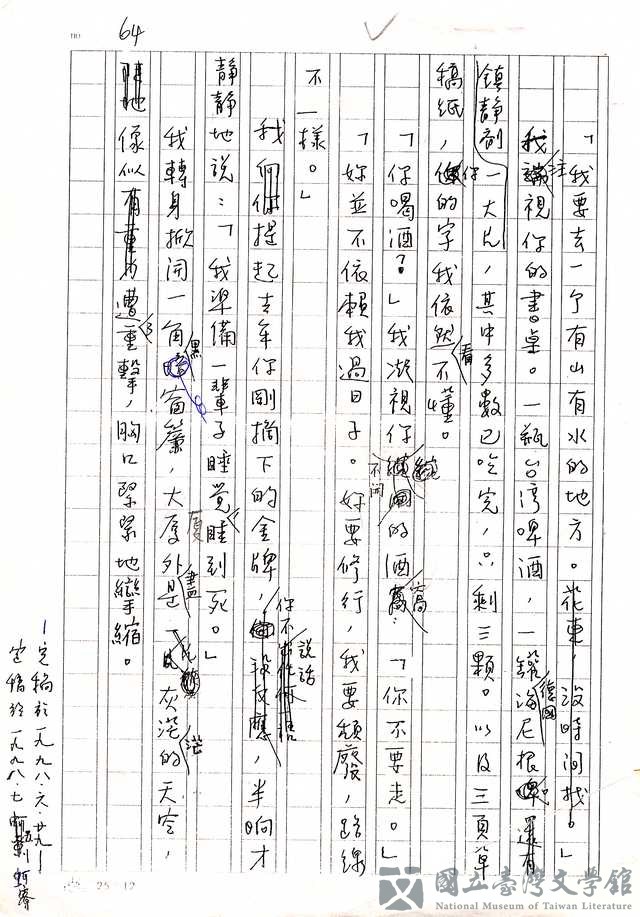 64
「我要去一个有山有水的地方。花東，沒時间找。」
我注視你的書桌。一瓶台湾啤酒，一鋁德國海尼根，還有
鎮静剤一大片，其中多數已吃完，只剩三顆。以及三頁草
稿纸，你的字我依然看不懂。
「你喝酒？」我凝視你不同的酒窩。「你不要走。」
「妳並不依賴我過日子。妳要修行，我要頹廢，路線
不一樣。」
我向你提起去年你剛摘下的金牌，你不說話，半晌才
静静地說：「我準備一輩子睡覚睡到死。」
我轉身掀開一角黑窗簾，大廈外盡是灰茫茫的天空，
像似遭了重擊，胸口緊緊地攣縮。
—完稿於一九九八·六·廿九—
定稿於一九九八·七
25 12
國立臺灣文學館
National Museum of Taiwan Literature